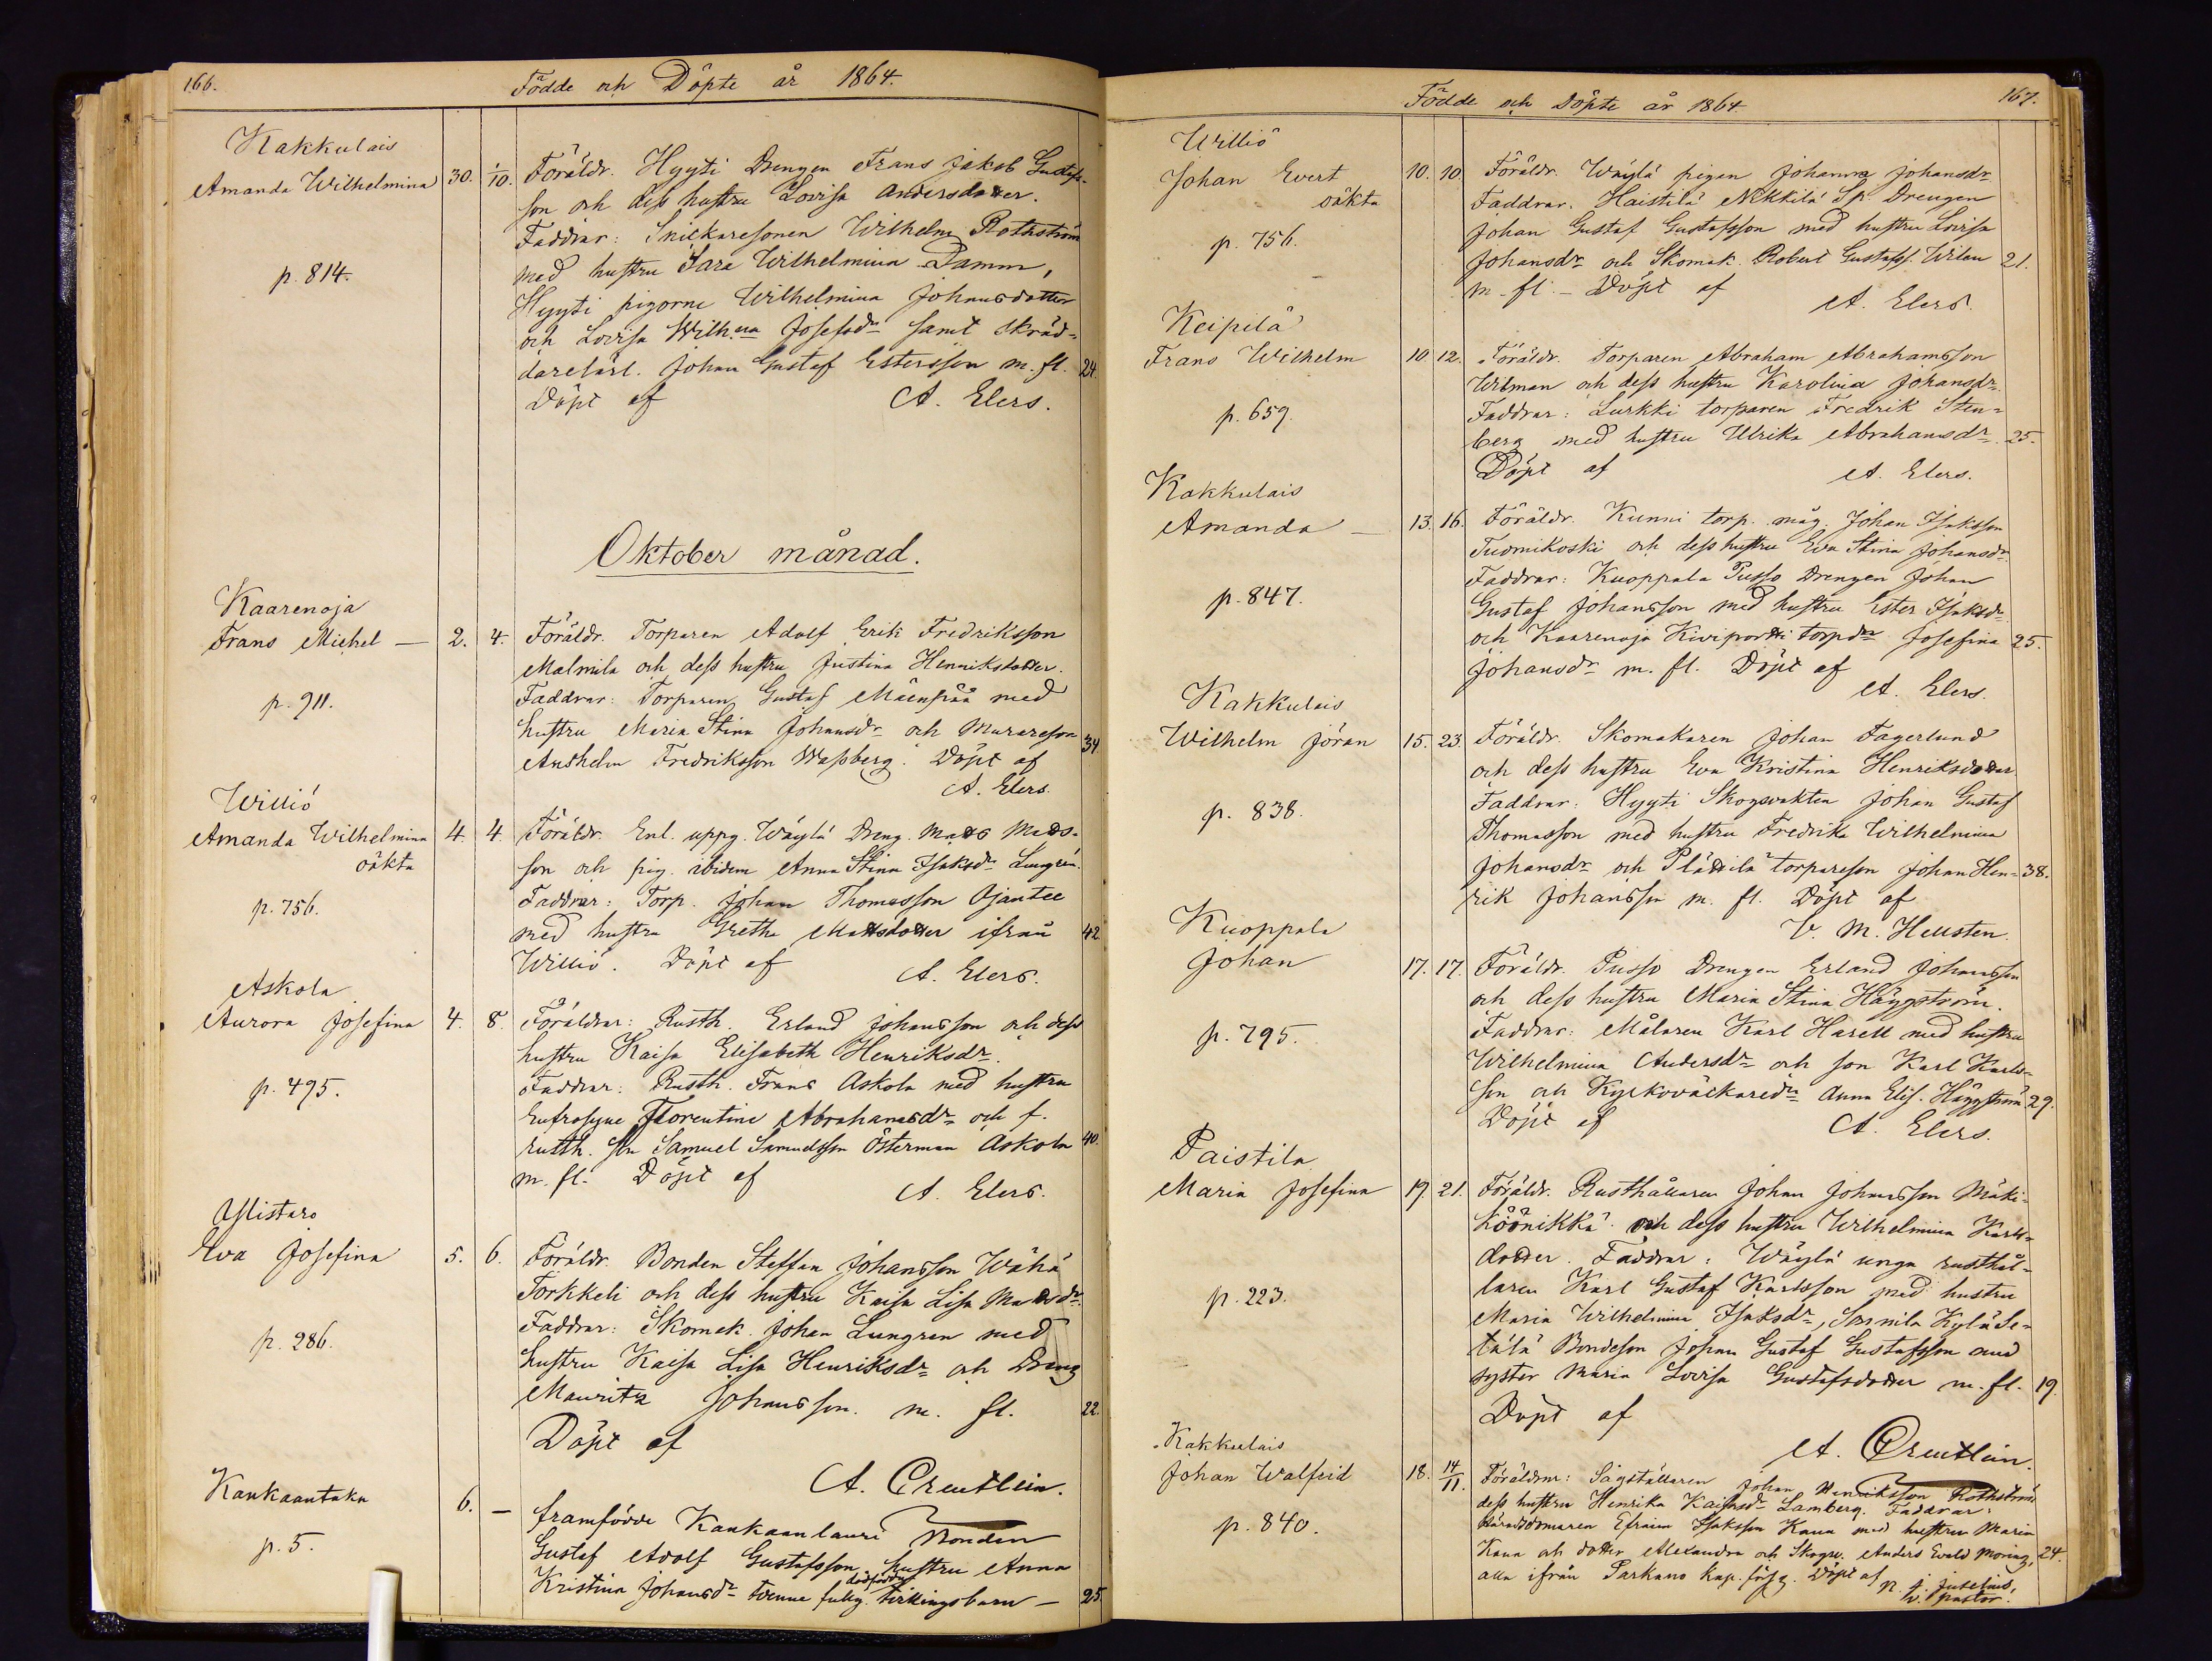 166.
Födde och Döpte år 1864.
Kakkulais
Amanda Wilhelmina 30. 1/10.
p. 814.
Föräldr. Hyyti Drengen Frans Jakob Gustafs-
son och dess hustru Lovisa Andersdotter.
Faddrar: Snickaresonen Wilhelm Rothström
med hustru Sara Wilhelmina Damm,
Hyyti pigorne Wilhelmina Johansdotter
och Lovisa Wilh:na Josefsdr samt Skräd-
darelärl. Johan Gustaf Estersson m. fl. 24.
Döpt af A. Elers.
Oktober månad.
Kaarenoja
Frans Michel — 2. 4.
p. 911.
Föräldr. Torparen Adolf Erik Fredriksson
Malmila och dess hustru Justina Henriksdotter.
Faddrar: Torparen Gustaf Mäenpää med
hustru Maria Stina Johansdr och Murareson
Anshelm Fredriksson Wassberg. Döpt af 34
A. Elers.
Williö
Amanda Wilhelmina 4. 4.
oäkta
p. 756.
Föräldr. Enl. uppg. Wäylä Dreng. Matts Matts-
son och pig. ibidem Anna Stina Isaksdr Lungren.
Faddrar: Torp. Johan Thomasson Ojantee
med hustru Gretha Mattsdotter ifrån 42
Williö. Döpt af A. Elers.
Askola
Aurora Josefina 4. 8.
p. 495.
Föräldrar: Rusth. Erland Johansson och dess
hustru Kaisa Elisabeth Henriksdr.
Faddrar: Rusth. Frans Askola med hustru
Eufrosyne Florentine Abrahamsdr och f.
rusth. son Samuel Samuelsson Österman Askola 40.
m. fl. Döpt af A. Elers.
Ylistaro
Eva Josefina 5. 6.
p. 286.
Föräldr. Bonden Steffan Johansson Wähä
Torkkeli och dess hustru Kaisa Lisa Mattsdr.
Faddrar: Skomak. Johan Lungren med
hustru Kaisa Lisa Henriksdr och Dreng
Mauritz Johansson m. fl. 22.
Döpt af
A. Creutlein.
Kankaantaka 6. —
p. 5.
framfödde Kankaanlauri Bonden
Gustaf Adolf Gustafsson hustru Anna
dödfödda
Kristina Johansdr tvenne fullg. tvillingsbarn — 25.
167.
Födde och Döpte år 1864
Williö
Johan Evert 10. 10.
oäkta
p. 756.
Föräldr. Wäylä pigan Johanna Johansdr
Faddrar. Haistila Nikkilä Sp. Drengen
Johan Gustaf Gustafsson med hustru Lovisa
Johansdr och Skomak. Robert Gustafss. Wilen 21.
m. fl. — Döpt af
A. Elers.
Keipilä
Frans Wilhelm 10 12.
p. 659.
Föräldr. Torparen Abraham Abrahamsson
Widman och dess hustru Karolina Johansdr.
Faddrar: Lurkki torparen Fredrik Sten-
berg med hustru Ulrika Abrahamsdr 25.
Döpt af A. Elers.
Kakkulais
Amanda — 13. 16.
p. 847.
Föräldr. Kunni torp. måg. Johan Isaksson
Tuomikoski och dess hustru Eva Stina Johansdr.
Faddrar: Kuoppala Pusso Drengen Johan
Gustaf Johansson med hustru Ester Isaksdr
och Kaarenoja Kiviportti torpdr Josefina 25.
Johansdr m. fl. Döpt af
A. Elers.
Kakkulais
Wilhelm Jöran 15. 23.
p. 838.
Föräldr. Skomakaren Johan Fagerlund
och dess hustru Eva Kristina Henriksdotter
Faddrar: Hyyti Skogsvakten Johan Gustaf
Thomasson med hustru Fredrika Wilhelmina
Johansdr och Plättilä torpareson Johan Hen- 38.
rik Johansson m. fl. Döpt af
V. M. Hellsten.
Kuoppala
Johan 17. 17.
p. 795.
Föräldr. Pusso Drengen Erland Johansson
och dess hustru Maria Stina Häggström.
Faddrar: Målaren Karl Harell med hustru
Wilhelmina Andersdr och son Karl Karls-
son och Kyrkoväckaredr Anna Elis. Häggström 29.
Döpt af A. Elers.
Paistila
Maria Josefina 19. 21.
p. 223.
Föräldr. Rusthållaren Johan Johansson Mäki-
Köönikkä och dess hustru Wilhelmina Karls-
dotter. Faddrar: Wäylä unga rusthål-
laren Karl Gustaf Karlsson med hustru
Maria Wilhelmina Isaksdr, Sonnila Kylä Se-
tälä Bondeson Johan Gustaf Gustafsson med
syster Maria Lovisa Gustafsdotter m. fl. 19.
Döpt af
A. Creutlein.
Kakkulais
Johan Walfrid 18. 14/11.
p. 840.
Föräldrar: Sågställaren Johan Henriksson Rothström
dess hustru Henrika Kaisasdr Lamberg. Faddrar:
Häradsdomaren Efraim Isaksson Kana med hustru Maria
Kana och dotter Alexandra och Skogsv. Anders Evald Moring, 24.
alla ifrån Parkano kap. förs. Döpt af N. J. Juselius,
v. pastor.